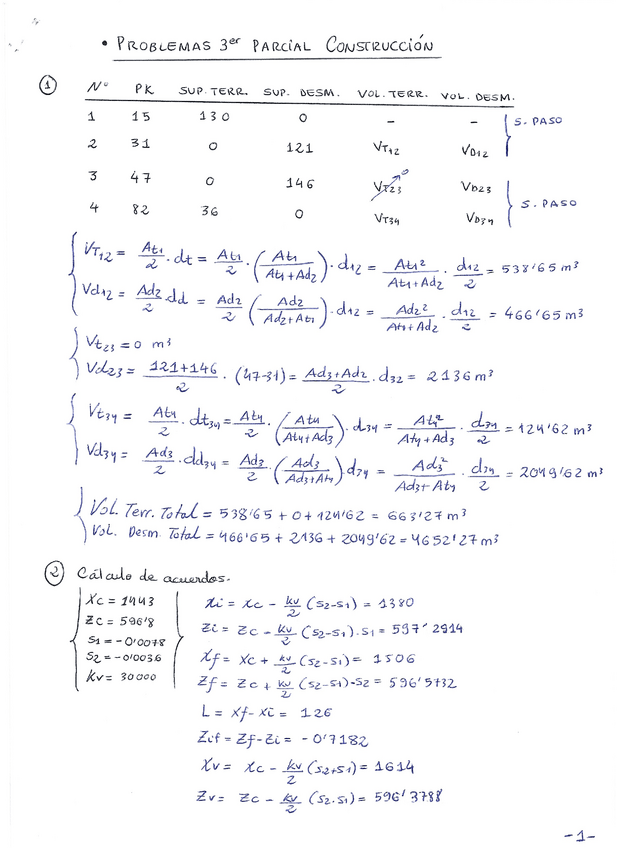 • PROBLEMAS 3er PARCIAL CONSTRUCCIÓN
① Nº PK SUP. TERR. SUP. DESM. VOL. TERR. VOL. DESM.
1 15 130 0 - - S. PASO
2 31 0 121 VT12 VD12
3 47 0 146 VT23 0 VD23 S. PASO
4 82 36 0 VT34 VD34
VT12 = At1/2 · dt = At1/2 · (At1/(At1+Ad2)) · d12 = At1²/(At1+Ad2) · d12/2 = 538'65 m³
Vd12 = Ad2/2 · dd = Ad2/2 (Ad2/(Ad2+At1)) · d12 = Ad2²/(At1+Ad2) · d12/2 = 466'65 m³
Vt23 = 0 m³
Vd23 = (121+146)/2 · (47-31) = (Ad3+Ad2)/2 · d32 = 2136 m³
Vt34 = At4/2 · dt34 = At4/2 · (At4/(At4+Ad3)) · d34 = At4²/(At4+Ad3) · d34/2 = 124'62 m³
Vd34 = Ad3/2 · dd34 = Ad3/2 · (Ad3/(Ad3+At4)) d34 = Ad3²/(Ad3+At4) · d34/2 = 2049'62 m³
Vol. Terr. Total = 538'65 + 0 + 124'62 = 663'27 m³
Vol. Desm. Total = 466'65 + 2136 + 2049'62 = 4652'27 m³
② Cálculo de acuerdos.
Xc = 1443
Zc = 596'8
S1 = -0'0078
S2 = -0'0036
Kv = 30000
Xi = Xc - kv/2 (S2-S1) = 1380
Zi = Zc - kv/2 (S2-S1) · S1 = 597'2914
Xf = Xc + kv/2 (S2-S1) = 1506
Zf = Zc + kv/2 (S2-S1) · S2 = 596'5732
L = Xf - Xi = 126
Zif = Zf - Zi = -0'7182
Xv = Xc - kv/2 (S2+S1) = 1614
Zv = Zc - kv/2 (S2·S1) = 596'3788
-1-